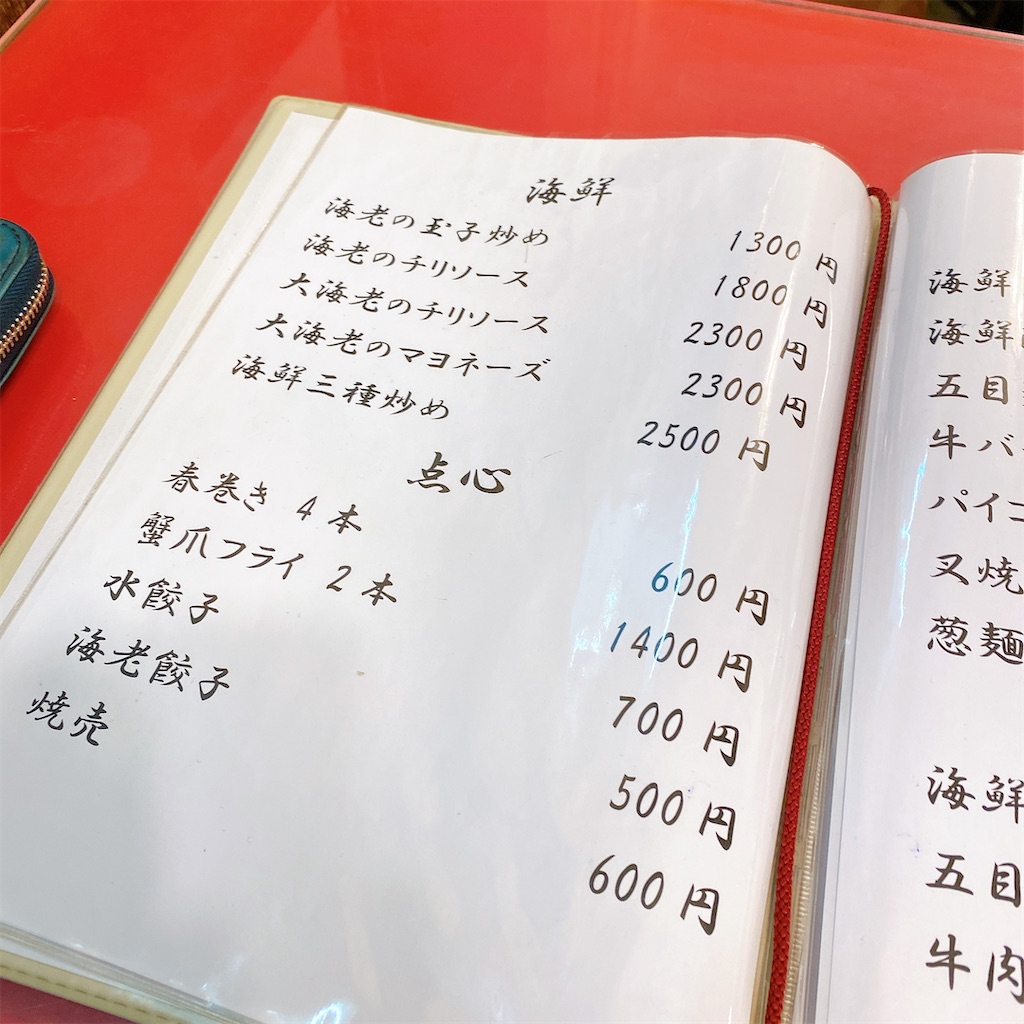 海鮮
海老の玉子炒め 1300円
海老のチリソース 1800円
大海老のチリソース 2300円
大海老のマヨネーズ 2300円
海鮮三種炒め 2500円
点心
春巻き 4本 600円
蟹爪フライ 2本 1400円
水餃子 700円
海老餃子 500円
焼売 600円
海鮮
海鮮
五目
牛バ
パイコ
叉焼
葱麺
海鮮
五目
牛肉